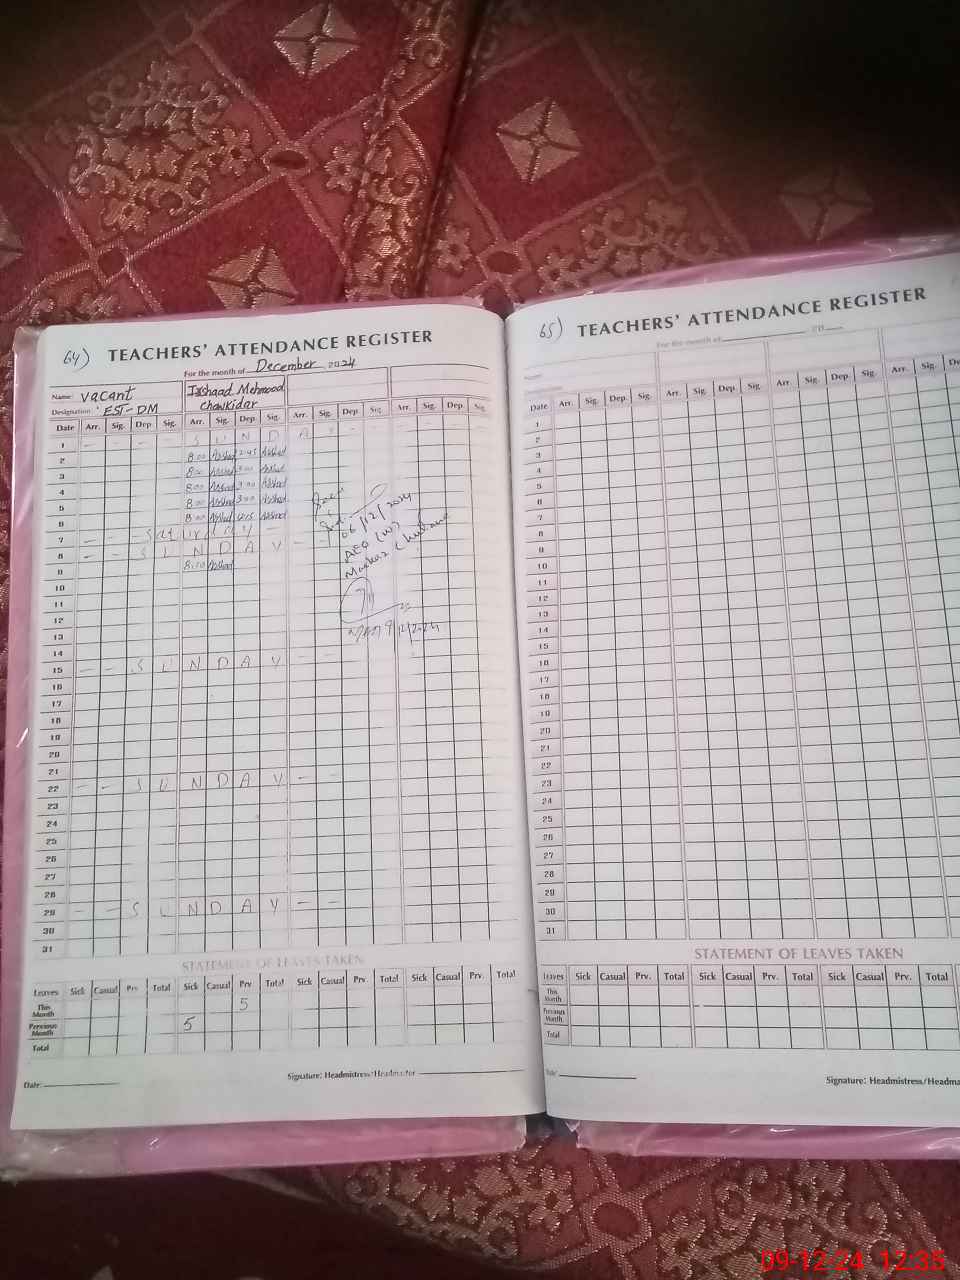 64)
TEACHERS' ATTENDANCE REGISTER
For the month of December 2024
Name: vacant
Designation: EST-DM
Irshaad Mehmood
chowkidar
Date Arr. Sig. Dep. Sig. Arr. Sig. Dep. Sig. Arr. Sig. Dep. Sig. Arr. Sig. Dep. Sig.
1 - - - - S U N D A Y - -
2 8:00 2:45
3 8:00 3:00
4 8:00 3:00
5 8:00 3:00
6 8:00 12:15
7 - - - Saturday
8 - - S U N D A Y - -
9 8:00
10
11
12
13
14
15 - - S U N D A Y - -
16
17
18
19
20
21
22 - - S U N D A Y - -
23
24
25
26
27
28
29 - - S U N D A Y - -
30
31
06/12/2024
AEO (W)
Markaz
9/12/2024
STATEMENT OF LEAVES TAKEN
Leaves Sick Casual Prv Total Sick Casual Prv Total Sick Casual Prv. Total Sick Casual Prv. Total
This Month 5
Previous Month 5
Total
Date:
Signature: Headmistress/Headmaster
65)
TEACHERS' ATTENDANCE REGISTER
For the month of 20
Name:
Date Arr. Sig. Dep. Sig. Arr. Sig. Dep. Sig. Arr. Sig. Dep. Sig. Arr. Sig. De
1
2
3
4
5
6
7
8
9
10
11
12
13
14
15
16
17
18
19
20
21
22
23
24
25
26
27
28
29
30
31
STATEMENT OF LEAVES TAKEN
Leaves Sick Casual Prv. Total Sick Casual Prv. Total Sick Casual Prv. Total Sick
This Month
Previous Month
Total
Date:
Signature: Headmistress/Headma
09-12-24 12:35